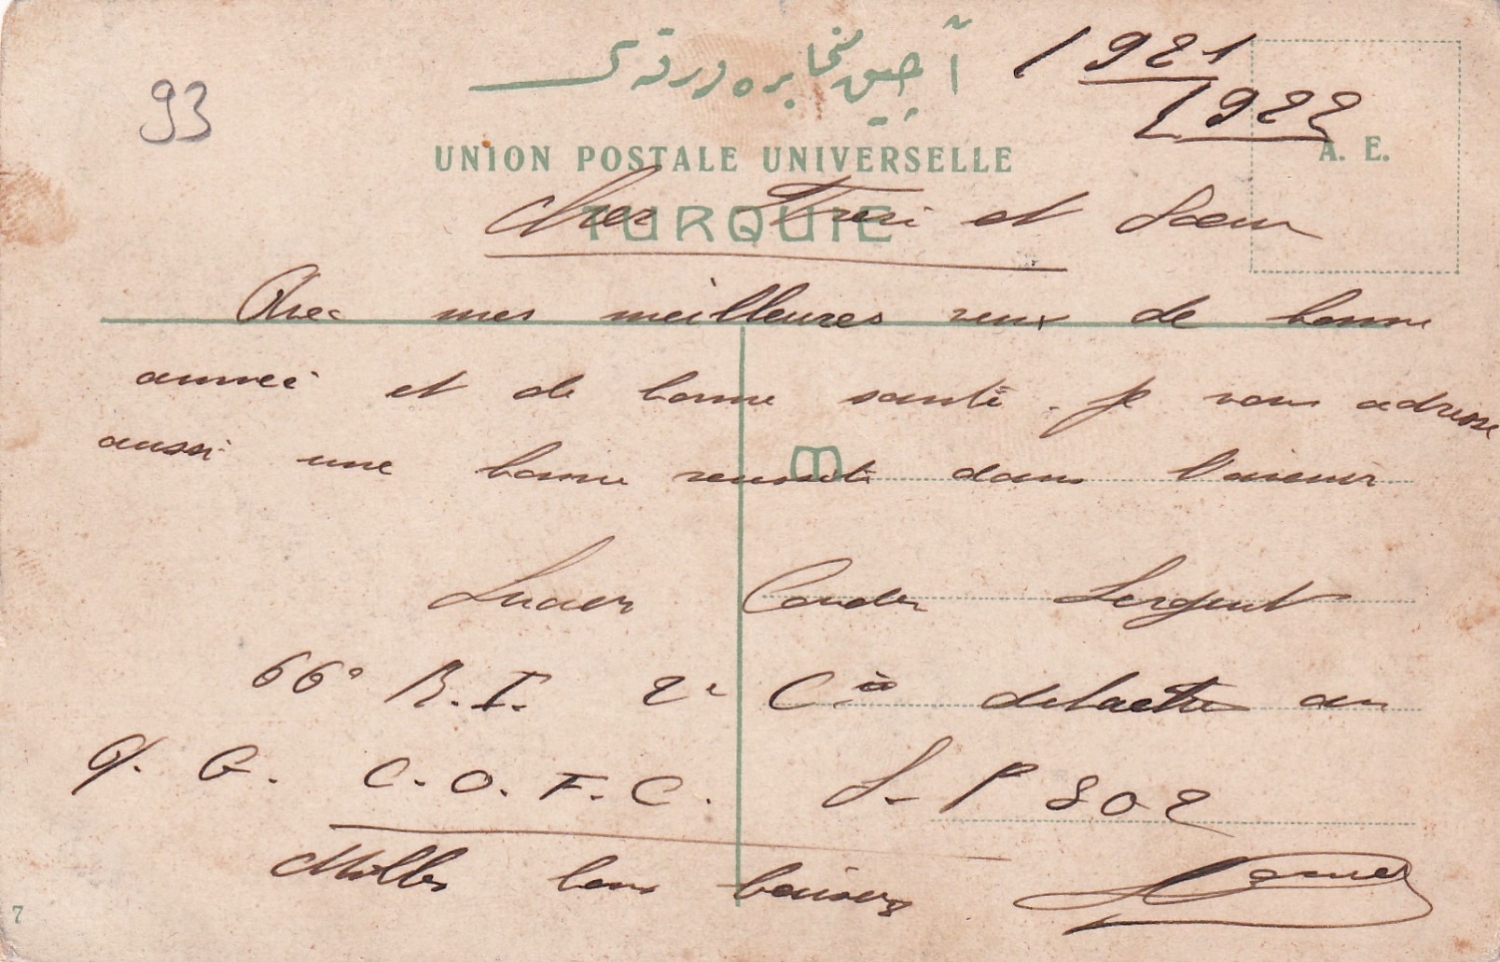 آچیق مخابره ورقه سی
1921
1922
93
UNION POSTALE UNIVERSELLE
A. E.
TURQUIE
Cher Frere et Soeur
Avec mes meilleures veux de bonne
année et de bonne santé. Je vous adresse
aussi une bonne reussite dans l'avenir
Sergent
66e R.I. 2e Cie detaché au
Q. G. C.O.F.C. S-P 802
Milles bons baisers
7